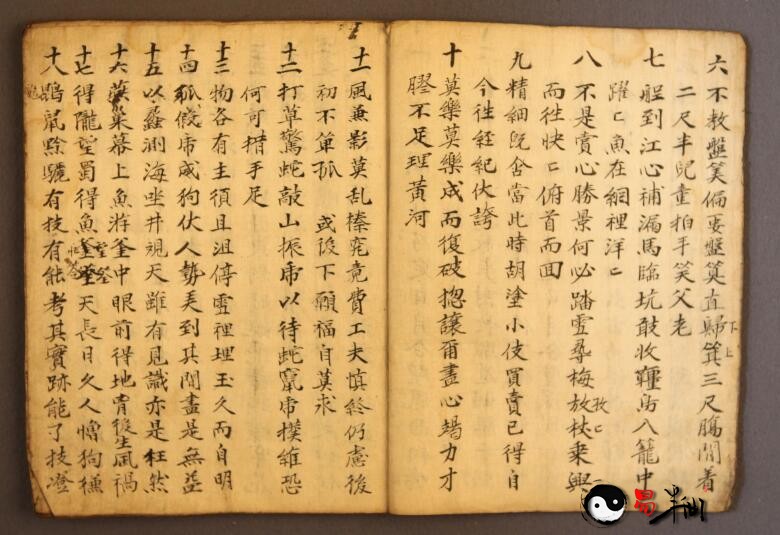 六 不教盤筭偏要盤筭直歸箕三尺腸閒着
下上
二尺半兒童拍手笑父老
七 舡到江心補漏馬臨坑敢收韁鳥入籠中
躍匕魚在網裡洋匕
八 不是賣心勝景何必踏雪尋梅放杖乘興
孜匕
而徃快匕俯首而回
九 精細既舍當此時胡塗小伎買賣已得自
今徃經紀伏誇
十 莫樂莫樂成而復破揔讓爾盡心竭力才
膠不足理黃河
十一 風兼影莫乱榛究竟費工夫慎終仍慮後
初不单孤 或後下願福自莫求
十二 打草驚蛇敲山振虎以待蛇竄虎撲維恐
何可措手足
十三 物各有主須且沮停雪裡理玉久而自明
十四 狐假虎威狗伏人勢美到其間盡是無益
十五 以蠡測海坐井視天雖有見識亦是枉然
十六 巢幕上魚游釜中眼前得地胃後生風禍
十七 得隴望蜀得魚筌天長日久人憎狗㩧
十八 鼯鼠黔驢有技有能考其實跡能了技
易半仙